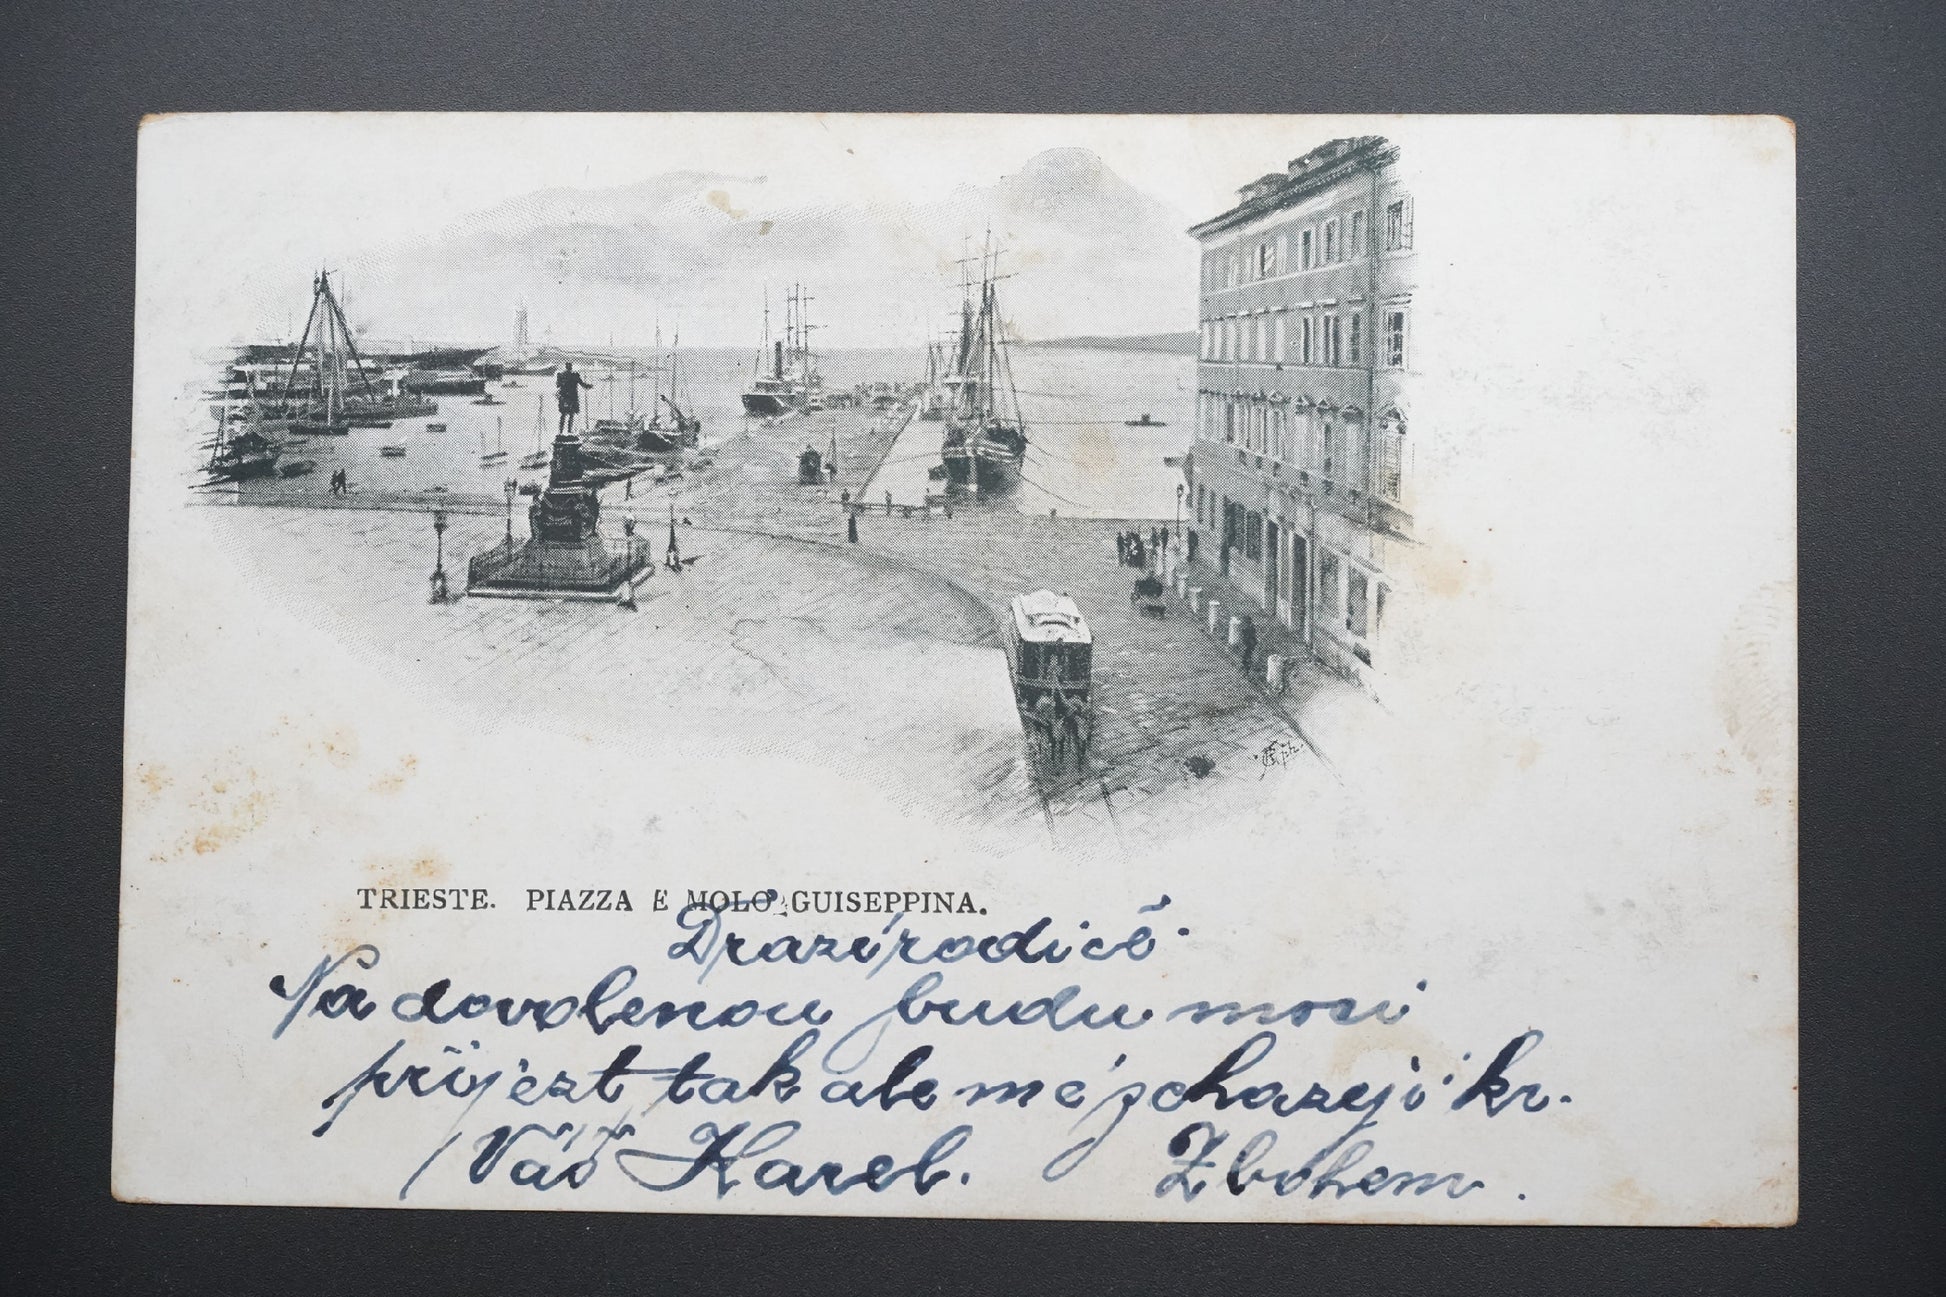 TRIESTE. PIAZZA E MOLO GUISEPPINA.
Drazí rodičě.
Na dovolenou budu mosi
přijezt tak ale mě zchazeji kr.
Váš Karel. Zbohem.